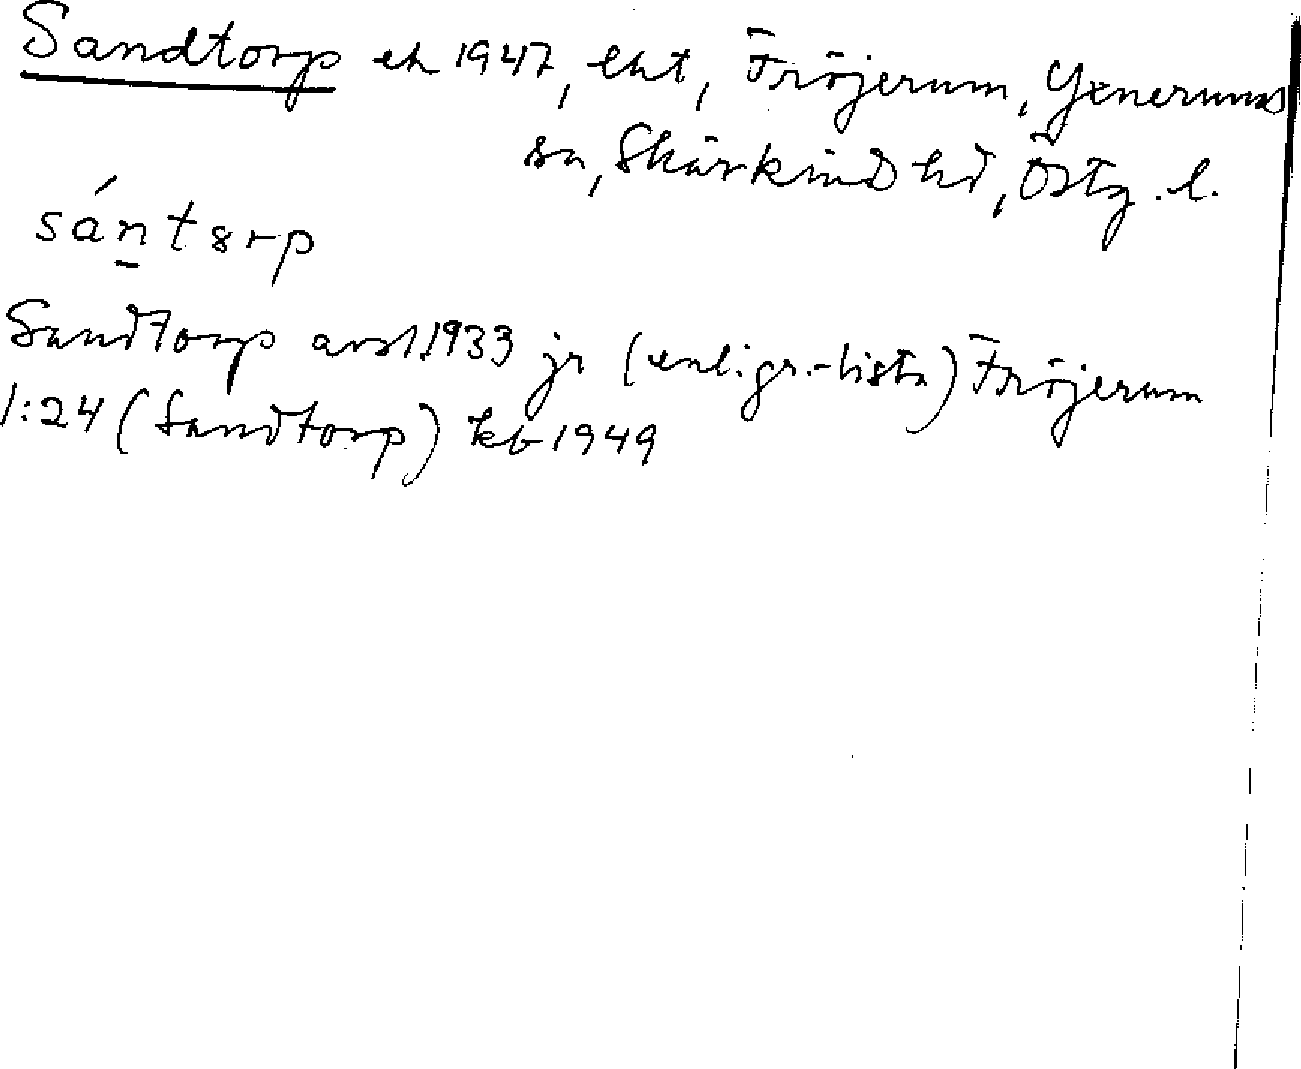 Sandtorp ek 1947, lht, Fröjerum, Yxnerums
sn, Skärkind hd, Östg. l.
sántsrp
Sandtorp avst. 1933 jr (enl. jr.-lista) Fröjerum
1:24 (Sandtorp) kb 1949